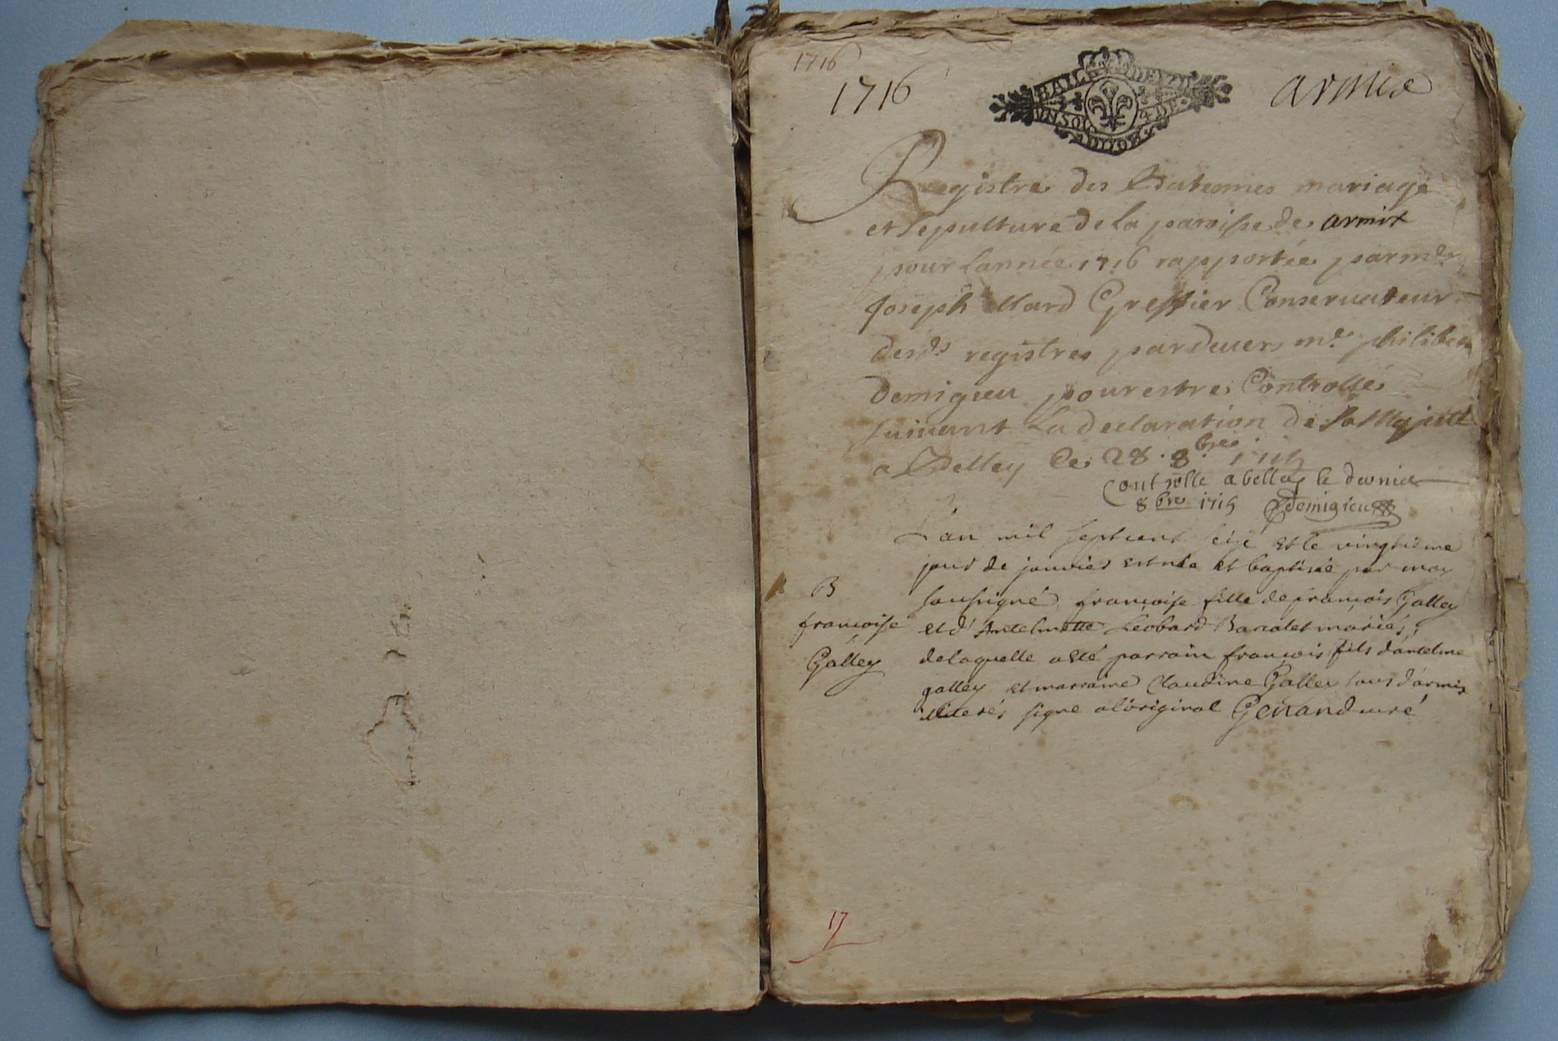 1716
1716
armix
Registre des Batemes mariage
et sepulture de la paroisse de armix
pour Lannée 1716 rapportée par mr
Joseph Greffier Conservateur
desds registres pardevers me philibert
Demigieu pour estre Controllée
suivant La declaration de Sa Majesté
a Belley le 28. 8bre 1715
Controlle a belley le dernier
8bre 1715 Demigieu
L'an mil sept cent seize et le vingtieme
jour de janvier est née et baptisée par moy
B
soussigné françoise fille de françois Galley
francoise
et d'Antelmette Leobard mariés,
delaquelle a été parrain françois fils dantelme
Galley
galley et marraine Claudine Galley tous d'armix
illiterés signe a l'original Geirand curé
17